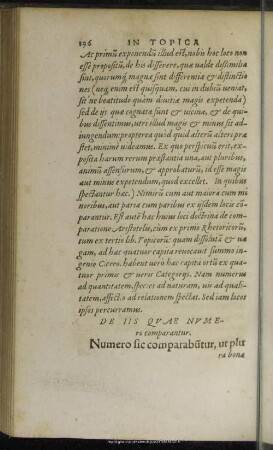 196 IN TOPICA
Ac primũ exponendũ illud est, nobis hoc loco non
esse propositũ, de his disserere, quæ ualde dissimilia
sint, quorumq́; magna sint differentia & distinctio
nes (neq; enim est quisquam, cui in dubiũ ueniat,
sit ne beatitudo quàm diuitiæ magis expetenda)
sed de ijs quæ cognata sunt & uicina, & de qui-
bus dissentimus, utri illud magis & minus sit ad-
iungendum: propterea quid quid alterũ alteri præ
stet, minimè uideamus. Ex quo perspicuũ erit, ex-
posita harum rerum præstantia una, aut pluribus,
animũ assensurum, & approbaturũ, id esse magis
aut minus expetendum, quod excellet. In quibus
spectantur hæc.) Nimirũ cum aut maiora cum mi
noribus, aut paria cum paribus ex ijsdem locis cõ-
parantur. Est autẽ hæc huius loci doctrina de com-
paratione Aristotelis, cum ex primo Rhetoricorũ,
tum ex tertio lib. Topicorũ: quam diffusam & ua
gam, ad hæc quatuor capita reuocauit summo in-
genio Cicero. habent uerò hæc capita ortũ ex qua-
tuor primis & ueris Categorijs. Nam numerus
ad quantitatem, species ad naturam, uis ad quali-
tatem, affectio ad relationem spectat. Sed iam locos
ipsos percurramus.
DE IIS QVAE NVME-
ro comparantur.
Numero sic comparabũtur, ut plu
ra bona